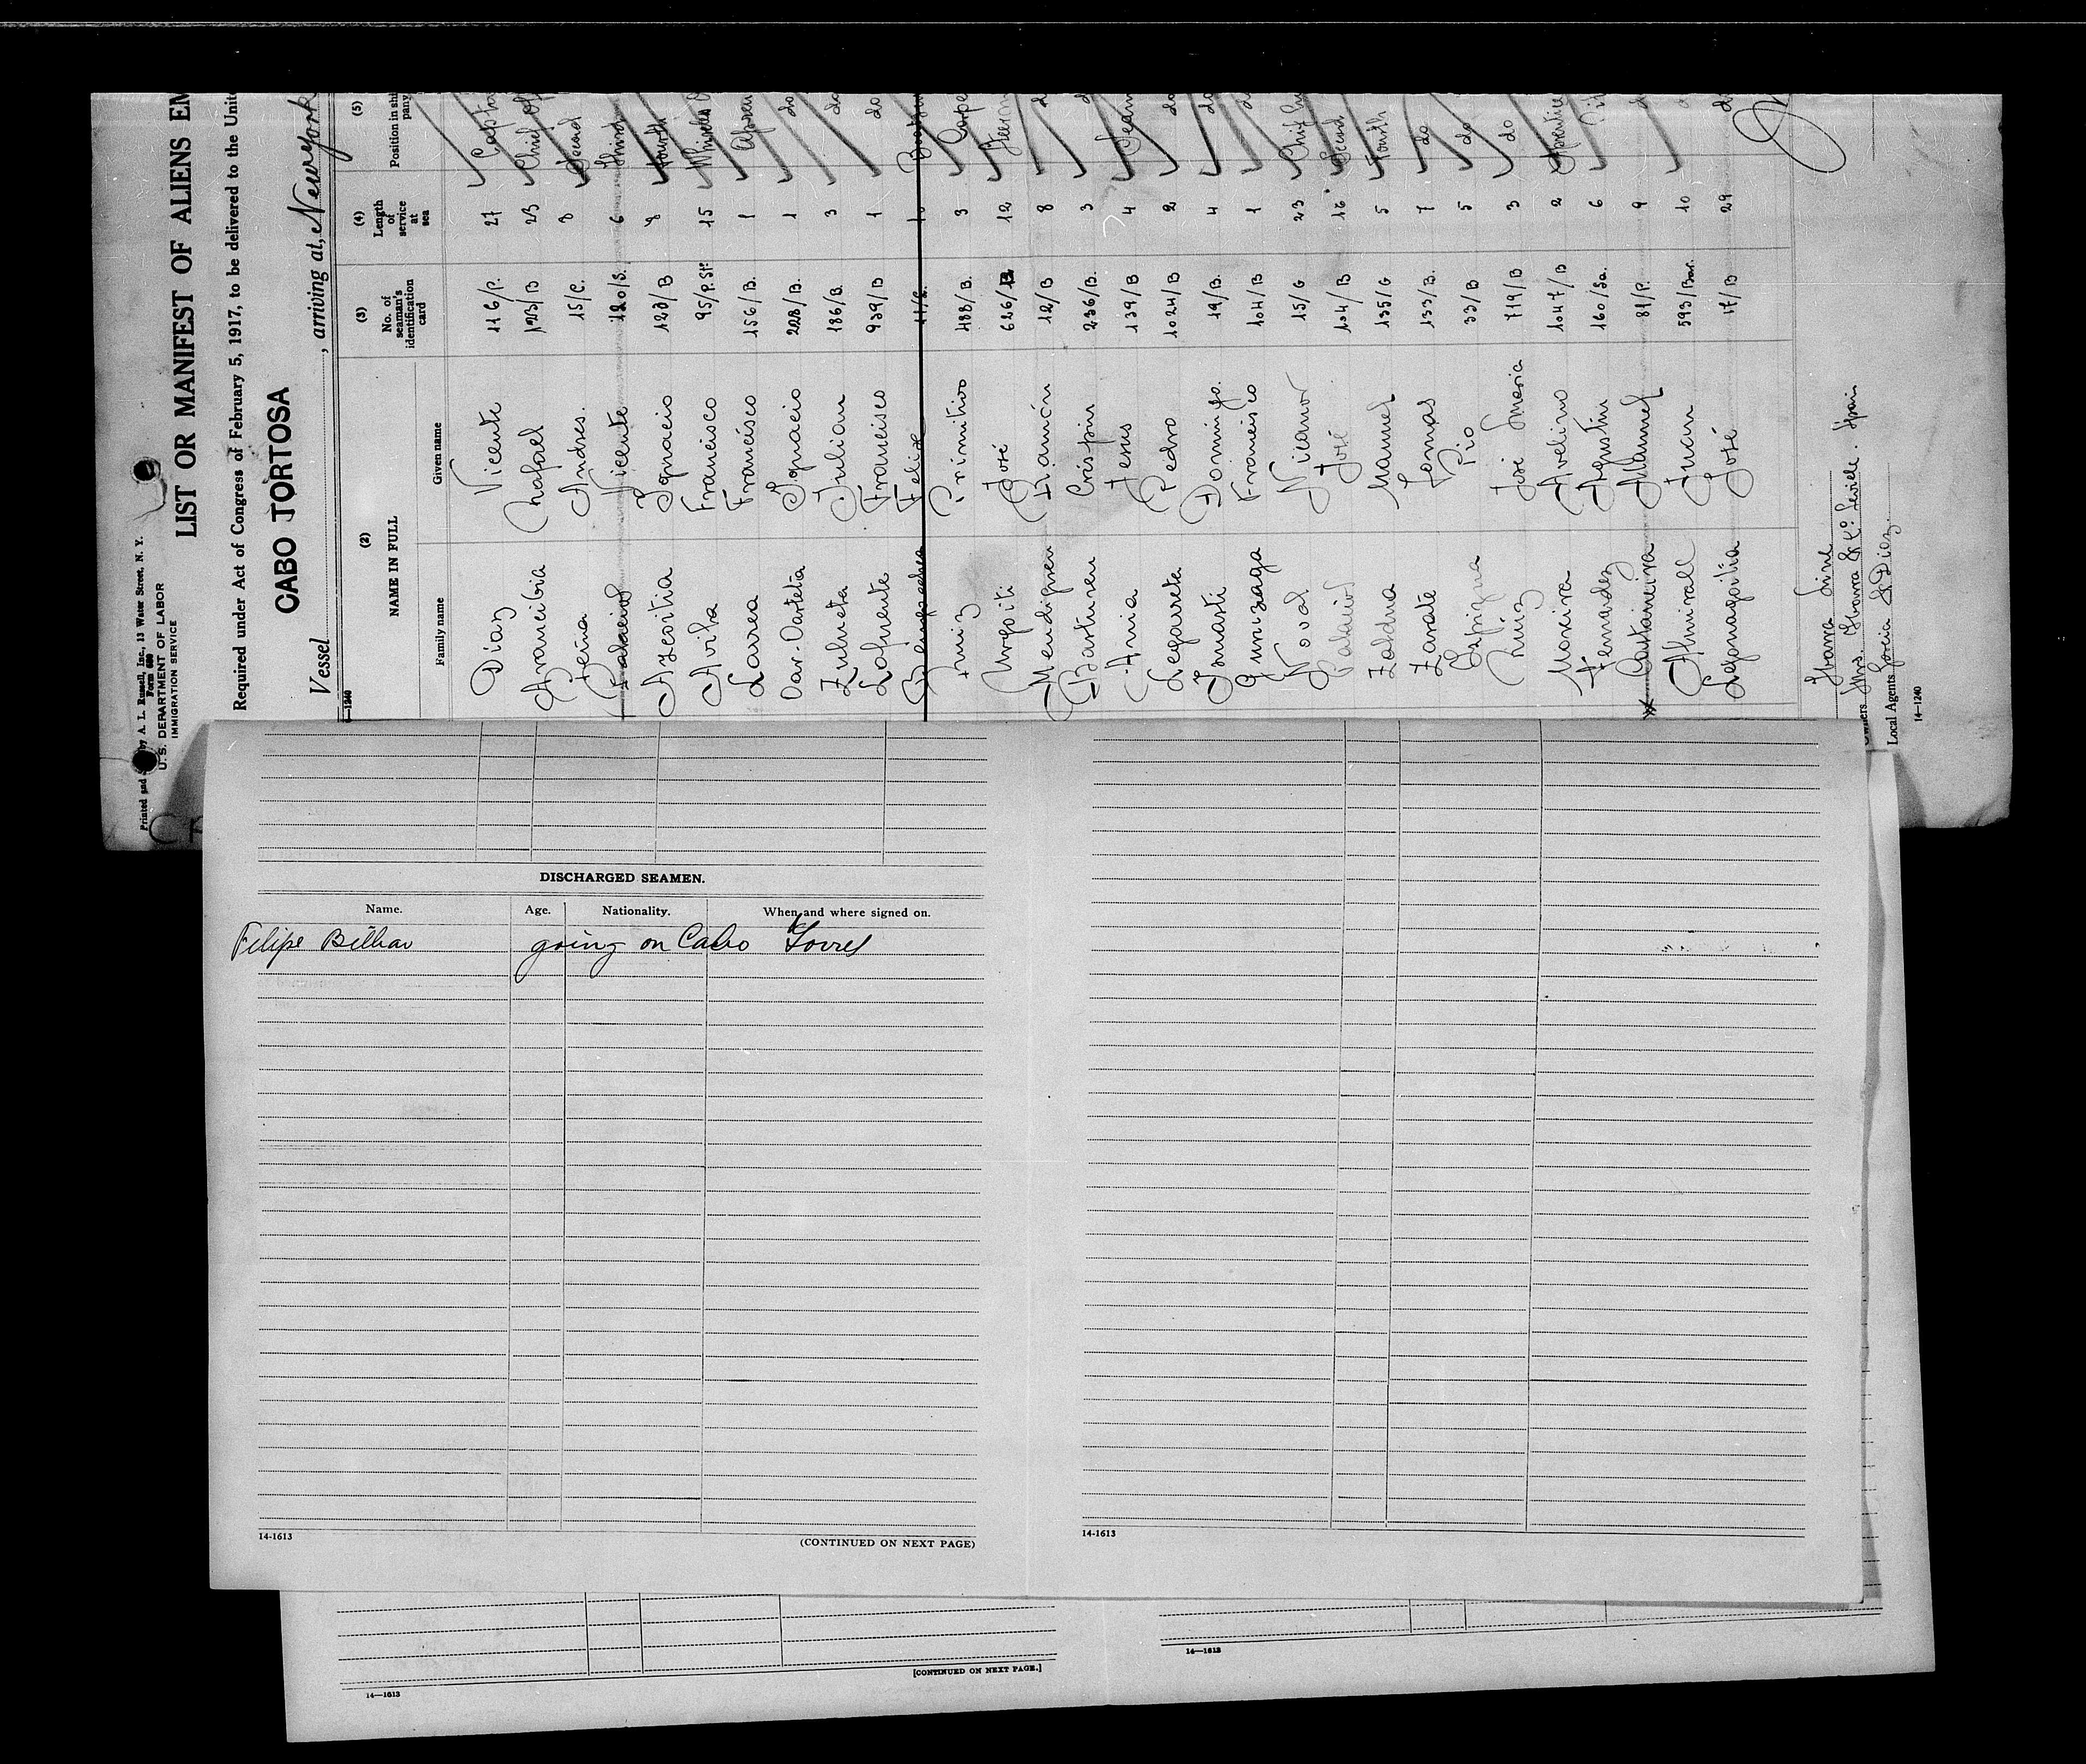 Printed and by A. L. Russell, Inc., 13 Water Street, N. Y.
Form 680
U. S. DEPARTMENT OF LABOR
IMMIGRATION SERVICE
LIST OR MANIFEST OF ALIENS EM
Required under Act of Congress of February 5, 1917, to be delivered to the Unite
CABO TORTOSA
Vessel , arriving at, Newyork
14-1240
(2) (3) (4) (5)
NAME IN FULL No. of seaman's identification card Length of service at sea Position in shi pany
Family name Given name
Diaz Vicente 116/P. 27 Captai
Arancibia Rafael 193/B 23 Chief Of
Peña Andres. 15/C. 8 Second
Palacios Vicente 120/S. 6 Third
Azcoitia Ignacio 123/B 8 Fourth
Avila Francisco 95/P.St. 15 Wireles O
Larrea Francisco 156/B. 1 Apren
Oar-Oarteta Ignacio 228/B. 1 do
Zulueta Julian 186/B. 3 do
Lafuente Francisco 939/B 1 do
Felix 11/S. 10
Ruiz Primitivo 488/B. 3 Carpe
Urgoiti José 626/B 12 Steerm
Mendiguren Ramón 12/B 8 d
Basturen Crispin 236/B. 3 d
Ania Jesus 139/B 4 Seam
Legarreta Pedro 1024/B 2 do
Inarti Domingo. 19/B. 4 do
Gunizaga Francisco 104/B 1 d
Noval Nicanor 15/G 23 Chif
Palacios José 134/B 16 Second
Zaldua Manuel 135/G 5 Fourth
Zarate Tomas 133/B. 7 do
Pio 33/B 5 do
Ruiz José Maria 719/B 3 do
Moreira Avelino 1047/B 2 Aprentice
Fernandez Agustin 160/Sa. 6
Castaneira Manuel 81/P. 9 d
Almirall Juan 593/Bar. 10 d
Legonagoitia José 17/B 29 d
Ybarra Line
Owners Hrs. Ybarra & Cº. Seville. Spain
Local Agents Garcia & Diaz.
14-1240
DISCHARGED SEAMEN.
Name. Age. Nationality. When and where signed on.
Filipe Bilbao going on Cabo Torres
14-1613
(CONTINUED ON NEXT PAGE)
14-1613
[CONTINUED ON NEXT PAGE.]
14-1613
14-1613